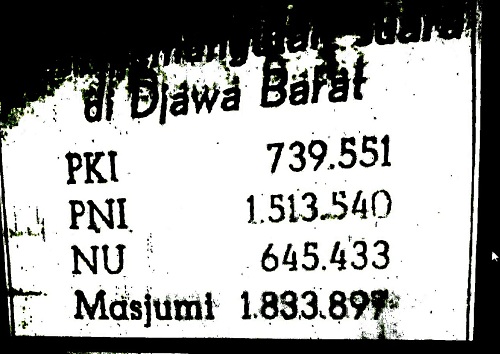 suara
di Djawa Barat
PKI 739.551
PNI 1.513.540
NU 645.433
Masjumi 1.833.897